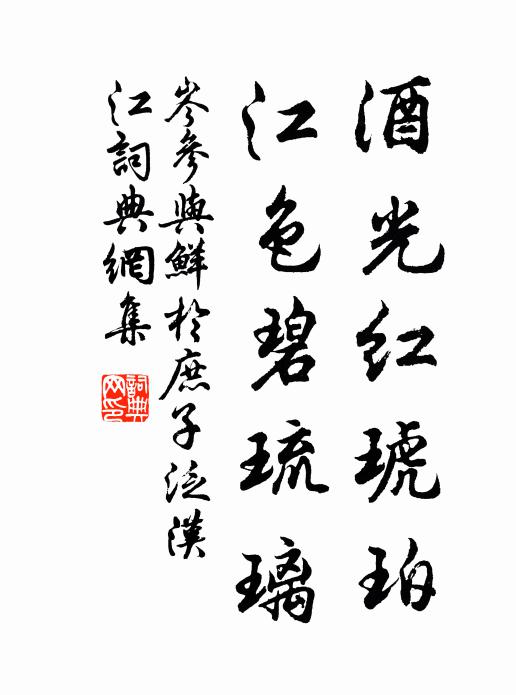 酒光紅琥珀
江色碧琉璃
岑參與鮮於庶子泛漢
江詞典網集
詞典
网印